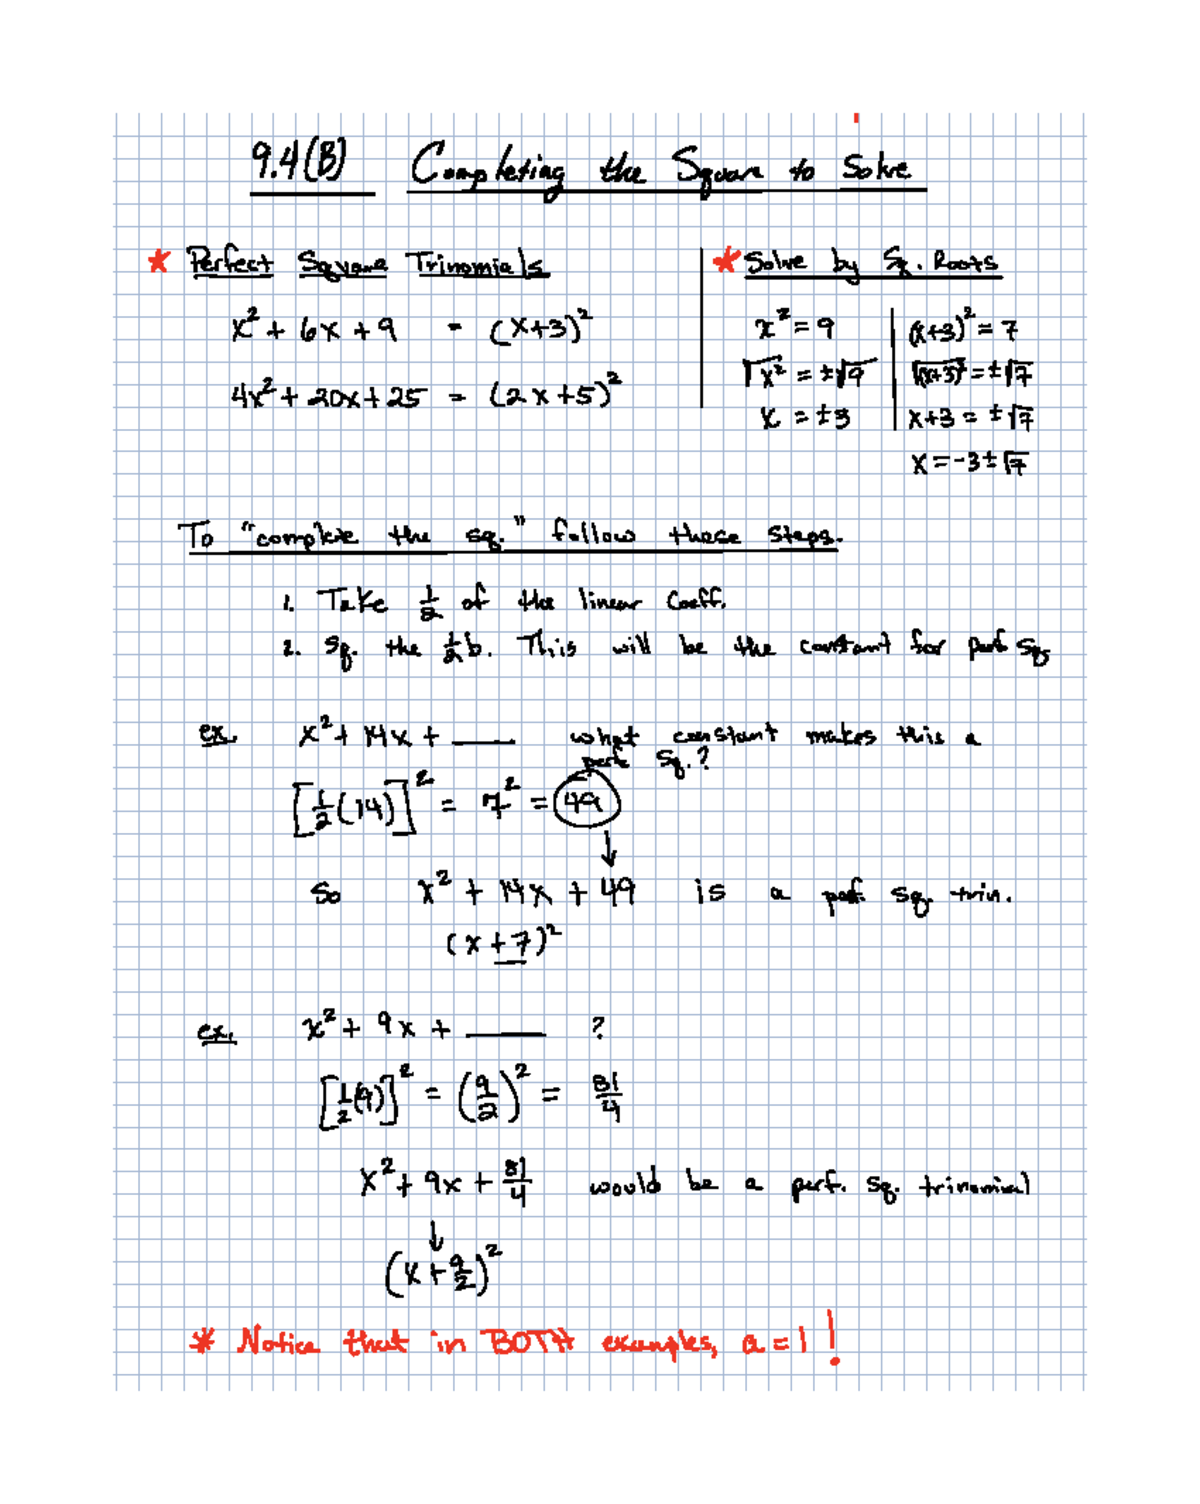 9.4(B) Completing the Square to Solve
* Perfect Square Trinomials
x² + 6x + 9 = (x+3)²
4x² + 20x + 25 = (2x+5)²
* Solve by Sq. Roots
x² = 9
√x² = ±√9
x = ±3
(x+3)² = 7
√(x+3)² = ±√7
x+3 = ±√7
x = -3 ± √7
To "complete the sq." follow these steps.
1. Take 1/2 of the linear coeff.
2. Sq. the 1/2 b. This will be the constant for perf sqs
ex. x² + 14x + ____ what constant makes this a
perf sq.?
[1/2(14)]² = 7² = 49
↓
So x² + 14x + 49 is a perf. sq. trin.
(x+7)²
ex. x² + 9x + ____ ?
[1/2(9)]² = (9/2)² = 81/4
x² + 9x + 81/4 would be a perf. sq. trinomial
↓
(x + 9/2)²
* Notice that in BOTH examples, a = 1!